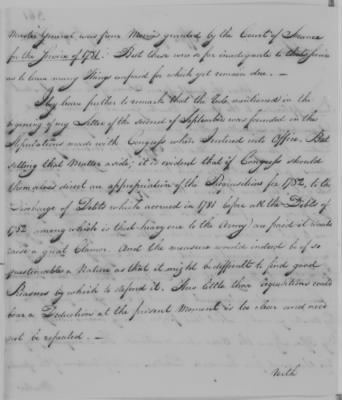 Master General was from Monies granted by the Court of France
for the Service of 1781. But these were so far inadequate to that Service
as to leave many Things unpaid for which yet remain due. —
Beg leave further to remark that the Rule mentioned in the
begining of my Letter of the second of September was founded in the
Stipulations made with Congress when I entered into Office. But
setting that Matter aside; it is evident that if Congress should
themselves direct an appropriation of the Requisitions for 1782, to the
Discharge of Debts which accrued in 1781 before all the Debts of
1782 among which is that heavy one to the Army are paid it would
cause a great Clamor. And the measure would indeed be of so
questionable a Nature as that it might be difficult to find good
Reasons by which to defend it. How little those requisitions could
bear a Deduction at the present Moment is too clear and need
not be repeated. —
With